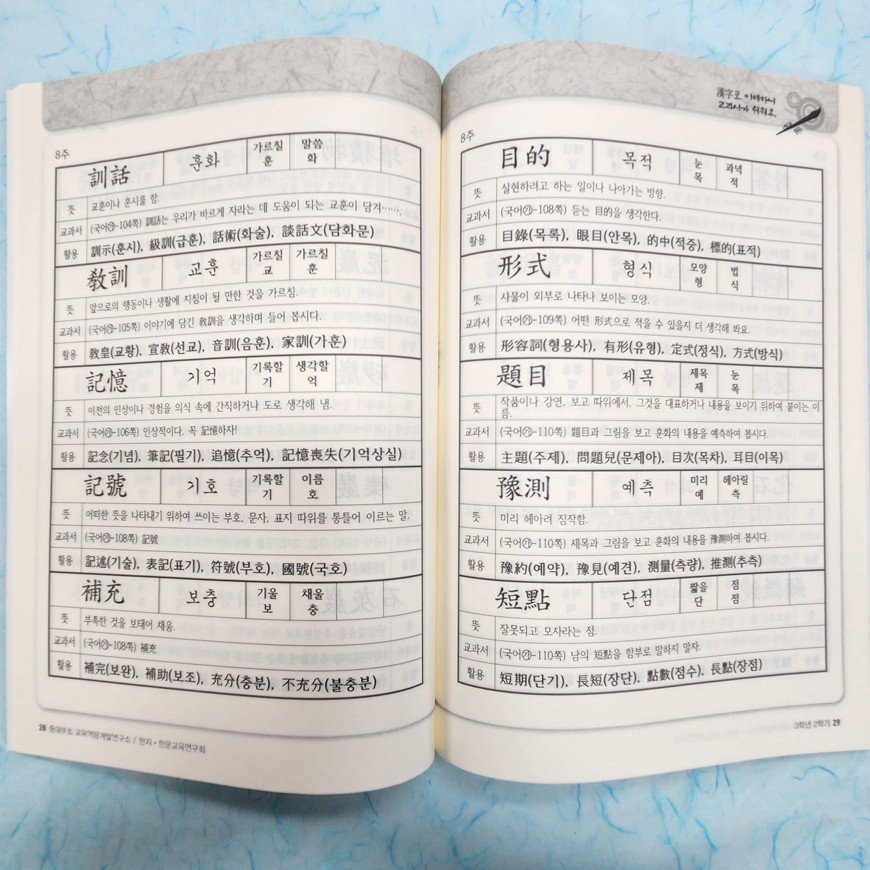 8주
訓話 훈화 가르칠 훈 말씀 화
뜻 교훈이나 훈시를 함.
교과서 (국어㉮-104쪽) 訓話는 우리가 바르게 자라는 데 도움이 되는 교훈이 담겨…….
활용 訓示(훈시), 級訓(급훈), 話術(화술), 談話文(담화문)
敎訓 교훈 가르칠 교 가르칠 훈
뜻 앞으로의 행동이나 생활에 지침이 될 만한 것을 가르침.
교과서 (국어㉮-105쪽) 이야기에 담긴 敎訓을 생각하며 들어 봅시다.
활용 敎皇(교황), 宣敎(선교), 音訓(음훈), 家訓(가훈)
記憶 기억 기록할 기 생각할 억
뜻 이전의 인상이나 경험을 의식 속에 간직하거나 도로 생각해 냄.
교과서 (국어㉮-106쪽) 인상적이다. 꼭 記憶하자!
활용 記念(기념), 筆記(필기), 追憶(추억), 記憶喪失(기억상실)
記號 기호 기록할 기 이름 호
뜻 어떠한 뜻을 나타내기 위하여 쓰이는 부호, 문자, 표지 따위를 통틀어 이르는 말.
교과서 (국어㉮-108쪽) 記號
활용 記述(기술), 表記(표기), 符號(부호), 國號(국호)
補充 보충 기울 보 채울 충
뜻 부족한 것을 보태어 채움.
교과서 (국어㉮-108쪽) 補充
활용 補完(보완), 補助(보조), 充分(충분), 不充分(불충분)
28 중대부초 교육역량개발연구소 / 한자·한문교육연구회
漢字로 이해하니
교과서가 쉬워요.
8주
目的 목적 눈 목 과녁 적
뜻 실현하려고 하는 일이나 나아가는 방향.
교과서 (국어㉮-108쪽) 듣는 目的을 생각한다.
활용 目錄(목록), 眼目(안목), 的中(적중), 標的(표적)
形式 형식 모양 형 법 식
뜻 사물이 외부로 나타나 보이는 모양.
교과서 (국어㉮-109쪽) 어떤 形式으로 적을 수 있을지 더 생각해 봐요.
활용 形容詞(형용사), 有形(유형), 定式(정식), 方式(방식)
題目 제목 제목 제 눈 목
뜻 작품이나 강연, 보고 따위에서, 그것을 대표하거나 내용을 보이기 위하여 붙이는 이
름.
교과서 (국어㉮-110쪽) 題目과 그림을 보고 훈화의 내용을 예측하여 봅시다.
활용 主題(주제), 問題兒(문제아), 目次(목차), 耳目(이목)
豫測 예측 미리 예 헤아릴 측
뜻 미리 헤아려 짐작함.
교과서 (국어㉮-110쪽) 제목과 그림을 보고 훈화의 내용을 豫測하여 봅시다.
활용 豫約(예약), 豫見(예견), 測量(측량), 推測(추측)
短點 단점 짧을 단 점 점
뜻 잘못되고 모자라는 점.
교과서 (국어㉮-110쪽) 남의 短點을 함부로 말하지 말자.
활용 短期(단기), 長短(장단), 點數(점수), 長點(장점)
3학년 2학기 29